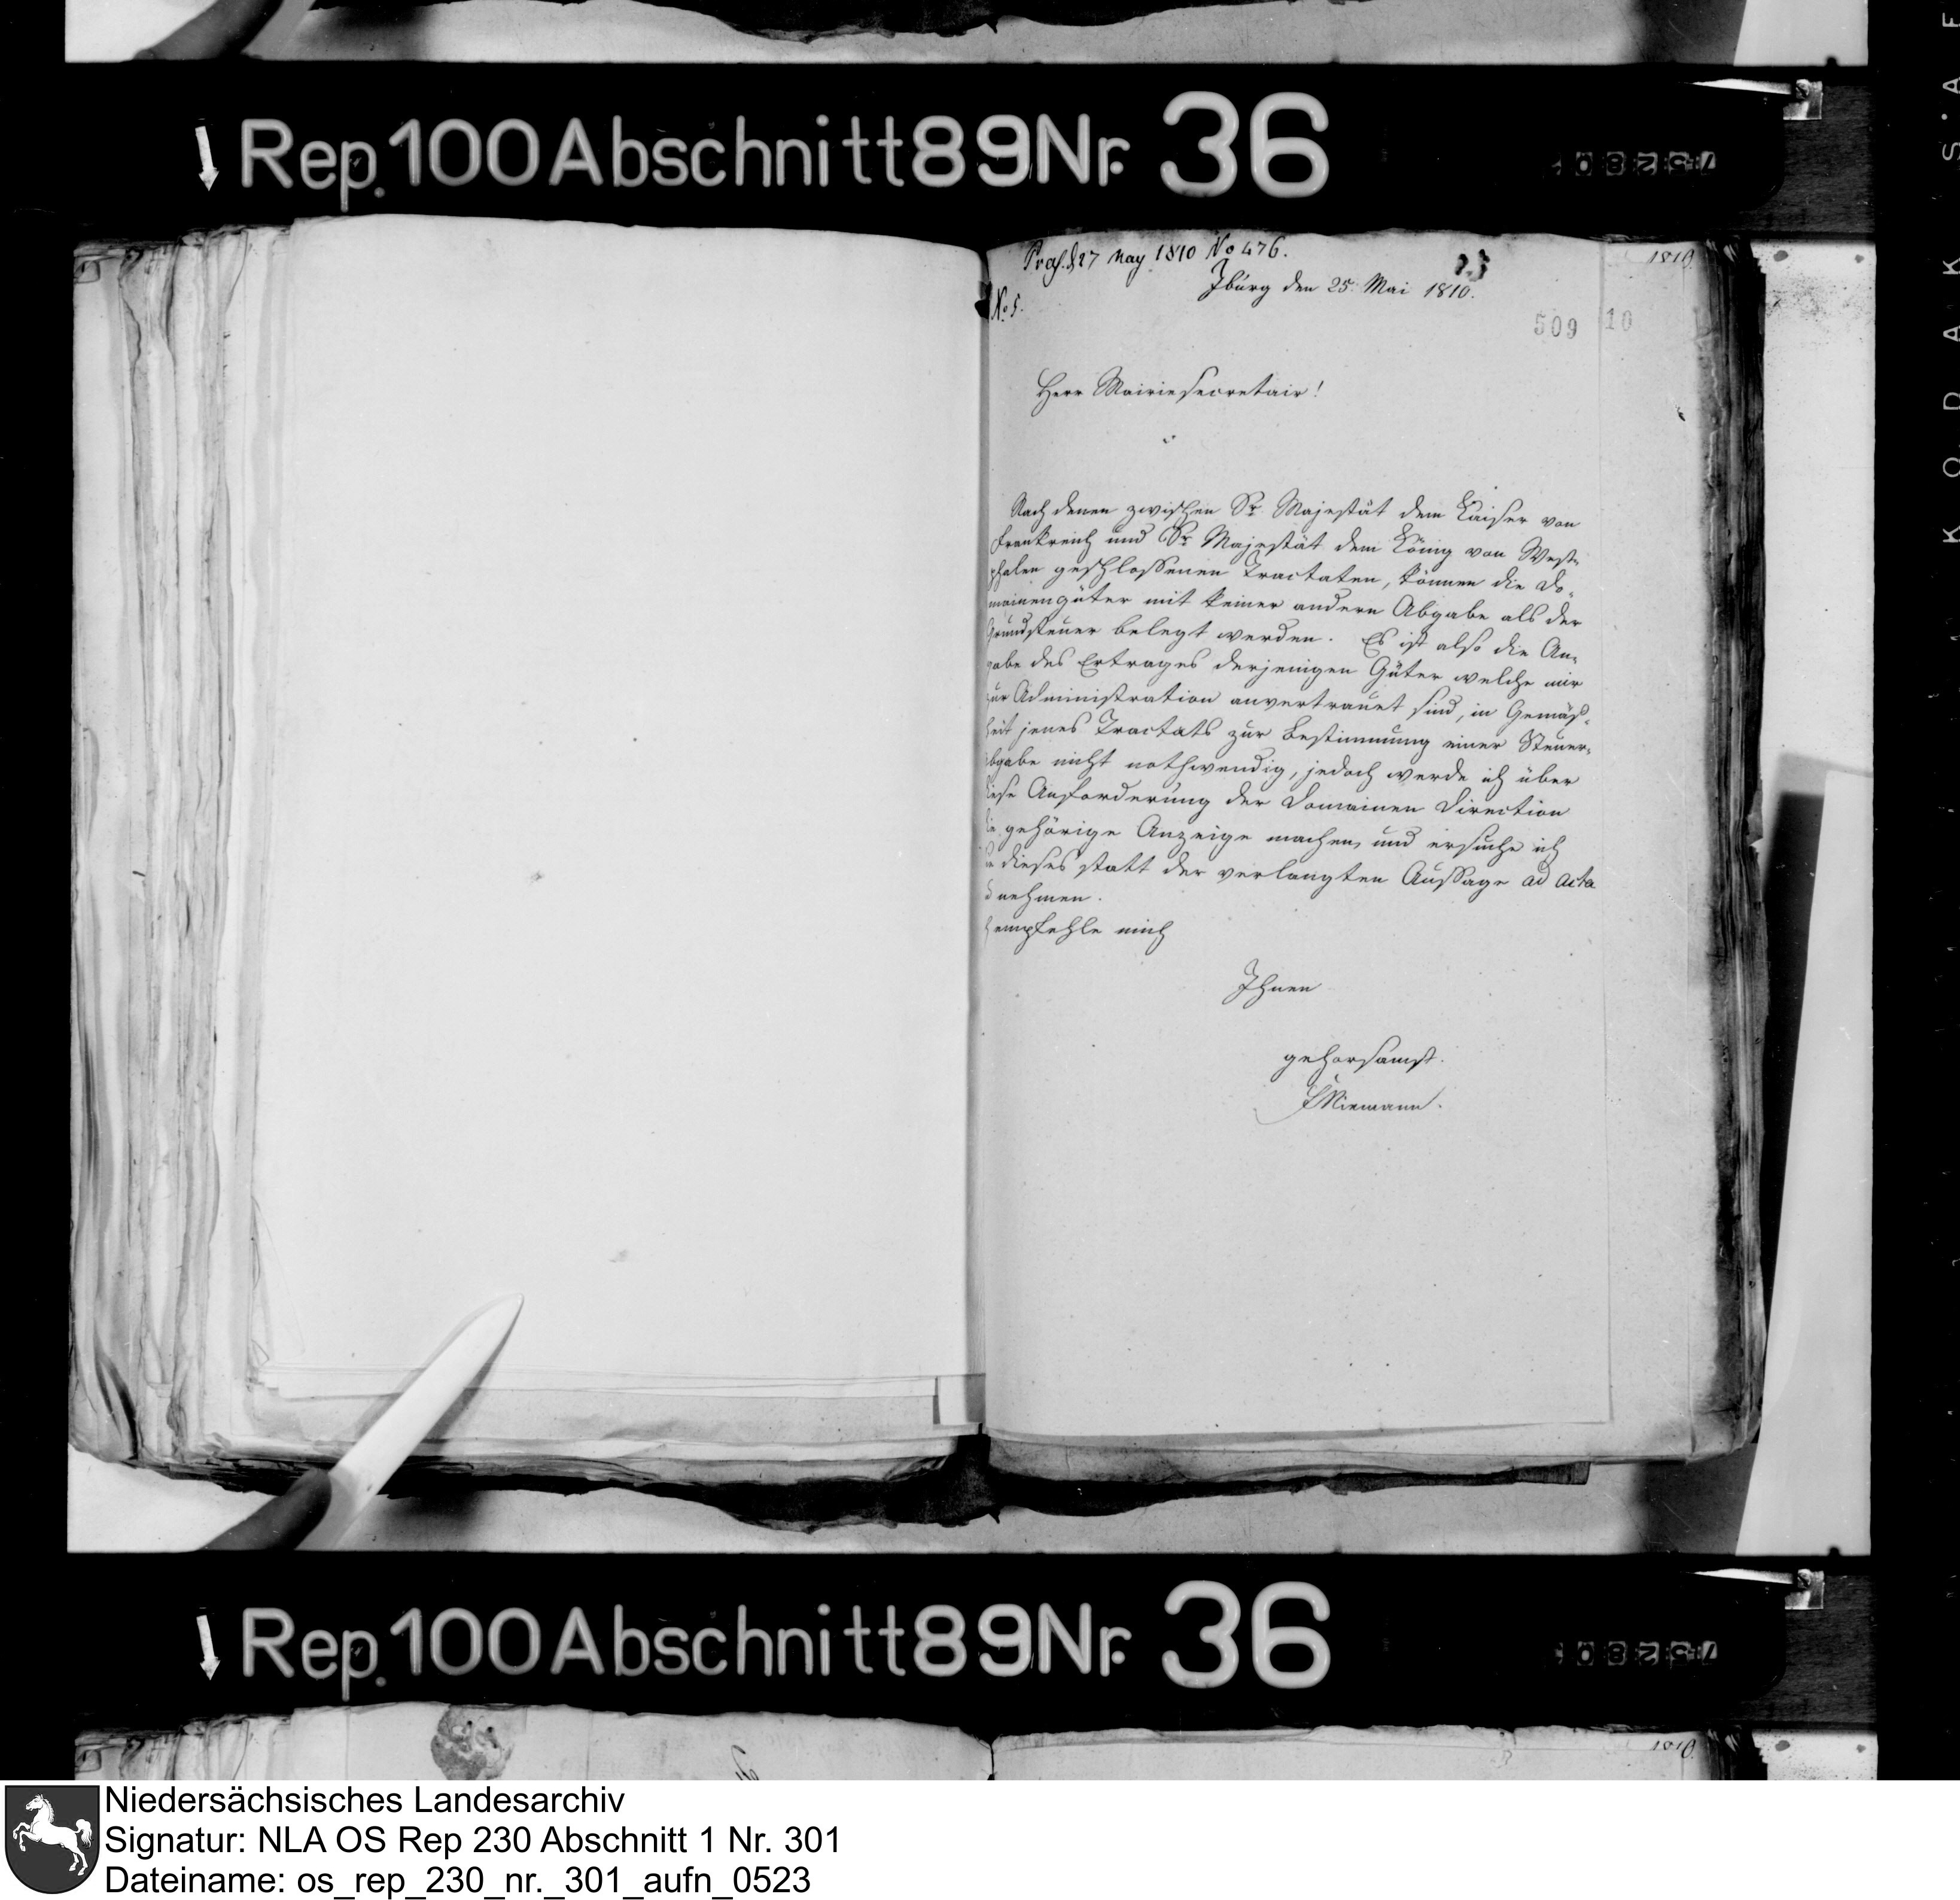 Rep. 100 Abschnitt 89 Nr. 36
Präs. d 27 May 1810 No 476.
Iburg den 25. Mai 1810.
No 5.
1810
509
10
Herr Mairiesecretair!
Nach denen zwischen Sr Majestät dem Kaiser von
Frankreich und Sr Majestät dem König von West-
phalen geschlossenen Tractaten, können die Do-
mainengüter mit keiner andern Abgabe als der
Grundsteuer belegt werden. Es ist also die An-
gabe des Ertrages derjenigen Güter welche mir
zur Administration anvertrauet sind, in Gemäs-
heit jenes Tractats zur Bestimmung einer Steuer-
abgabe nicht nothwendig, jedoch werde ich über
diese Anforderung der Domainen Direction
die gehörige Anzeige machen, und ersuche ich
dieses statt der verlangten Aussage ad acta
nehmen.
empfehle mich
Ihnen
gehorsamst.
Niemann.
Rep. 100 Abschnitt 89 Nr. 36
1810
KODAK S.A.F
Niedersächsisches Landesarchiv
Signatur: NLA OS Rep 230 Abschnitt 1 Nr. 301
Dateiname: os_rep_230_nr._301_aufn_0523